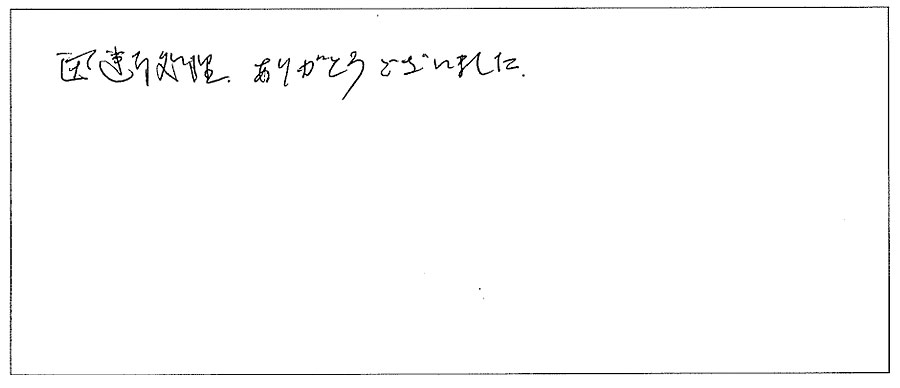 迅速な処理、ありがとうございました。